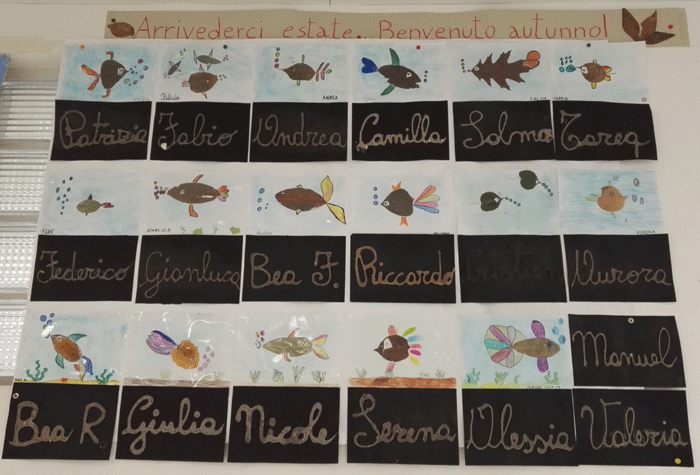 Arrivederci estate.. Benvenuto autunno!
Patrizia Fabio Andrea Camilla Salma Tareq
Federico Gianluca Bea F. Riccardo Cristian Aurora
Manuel
Bea R Giulia Nicole Serena Alessia Valeria